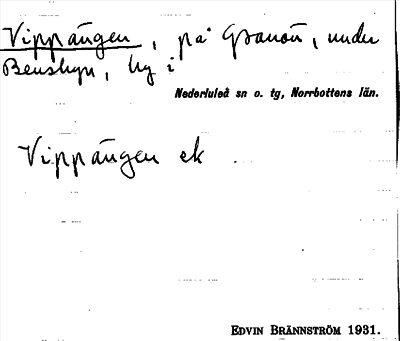 Vippängen, på Granön, under
Bensbyn, by i
Nederluleå sn o. tg, Norrbottens län.
Vippängen ek
EDVIN BRÄNNSTRÖM 1931.